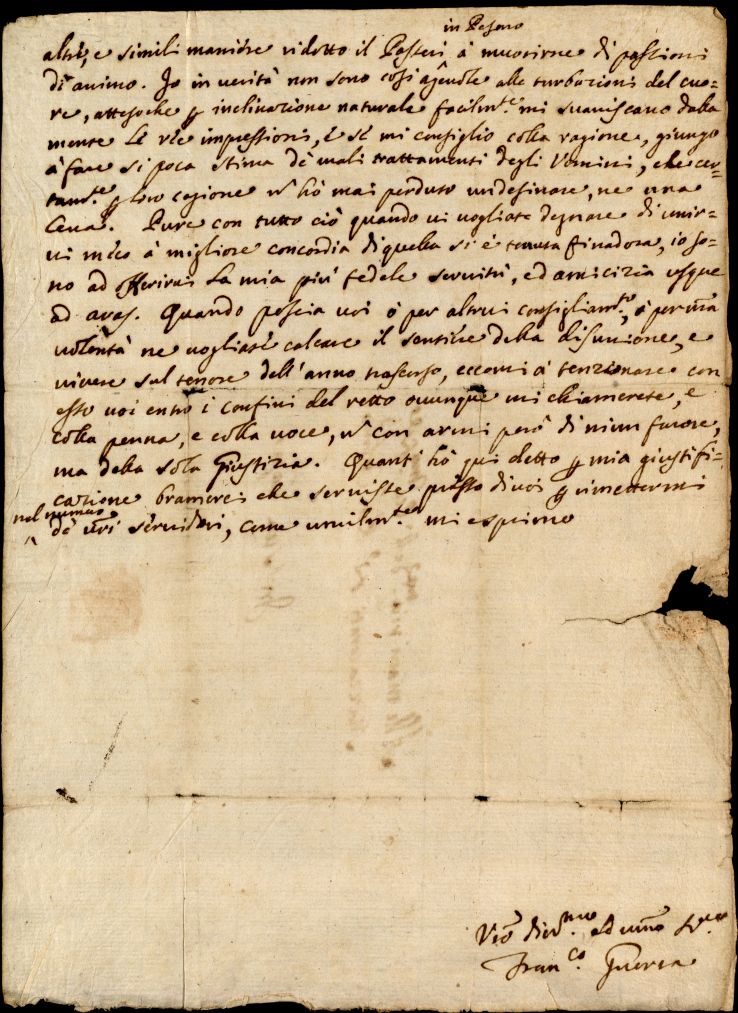 in Pesaro
altri, e simili maniere ridotto il Passeri à muorirne di passioni
di animo. Io in verità non sono così agevole alle turbazioni del cuo-
re, attesoche ꝑ inclinazione naturale facilm.te mi svaniscano dalla
mente le rie impressioni, e se mi consiglio colla ragione, giungo
à fare si poca stima de mali trattamenti degli Uomini, che cer-
tam.te ꝑ loro cagione ñ hò mai perduto un desinare, ne una
Cena. Pure con tutto ciò quando vi vogliate degnare di unir-
vi meco à migliore concordia di quella si è tenuta finadora, io so-
no ad offerirvi la mia più fedele servitù, ed amicizia usque
ad aras. Quando poscia voi ò per altrui consigliam.to, ò per ṽra
volontà ne vogliate calcare il sentiere della disunione, e
vivere sul tenore dell'anno trascorso, eccomi à tenzionare con
esso voi entro i confini del retto ovunque mi chiamerete, e
colla penna, e colla voce, ñ con armi però di niun furore,
ma della sola Giustizia. Quant'hò qui detto ꝑ mia giustifi-
cazione bramerei che servisse presso di voi ꝑ rimettermi
nel numero
de ṽri servidori, come umilm.te mi esprimo
ed
Franc.co Guerra